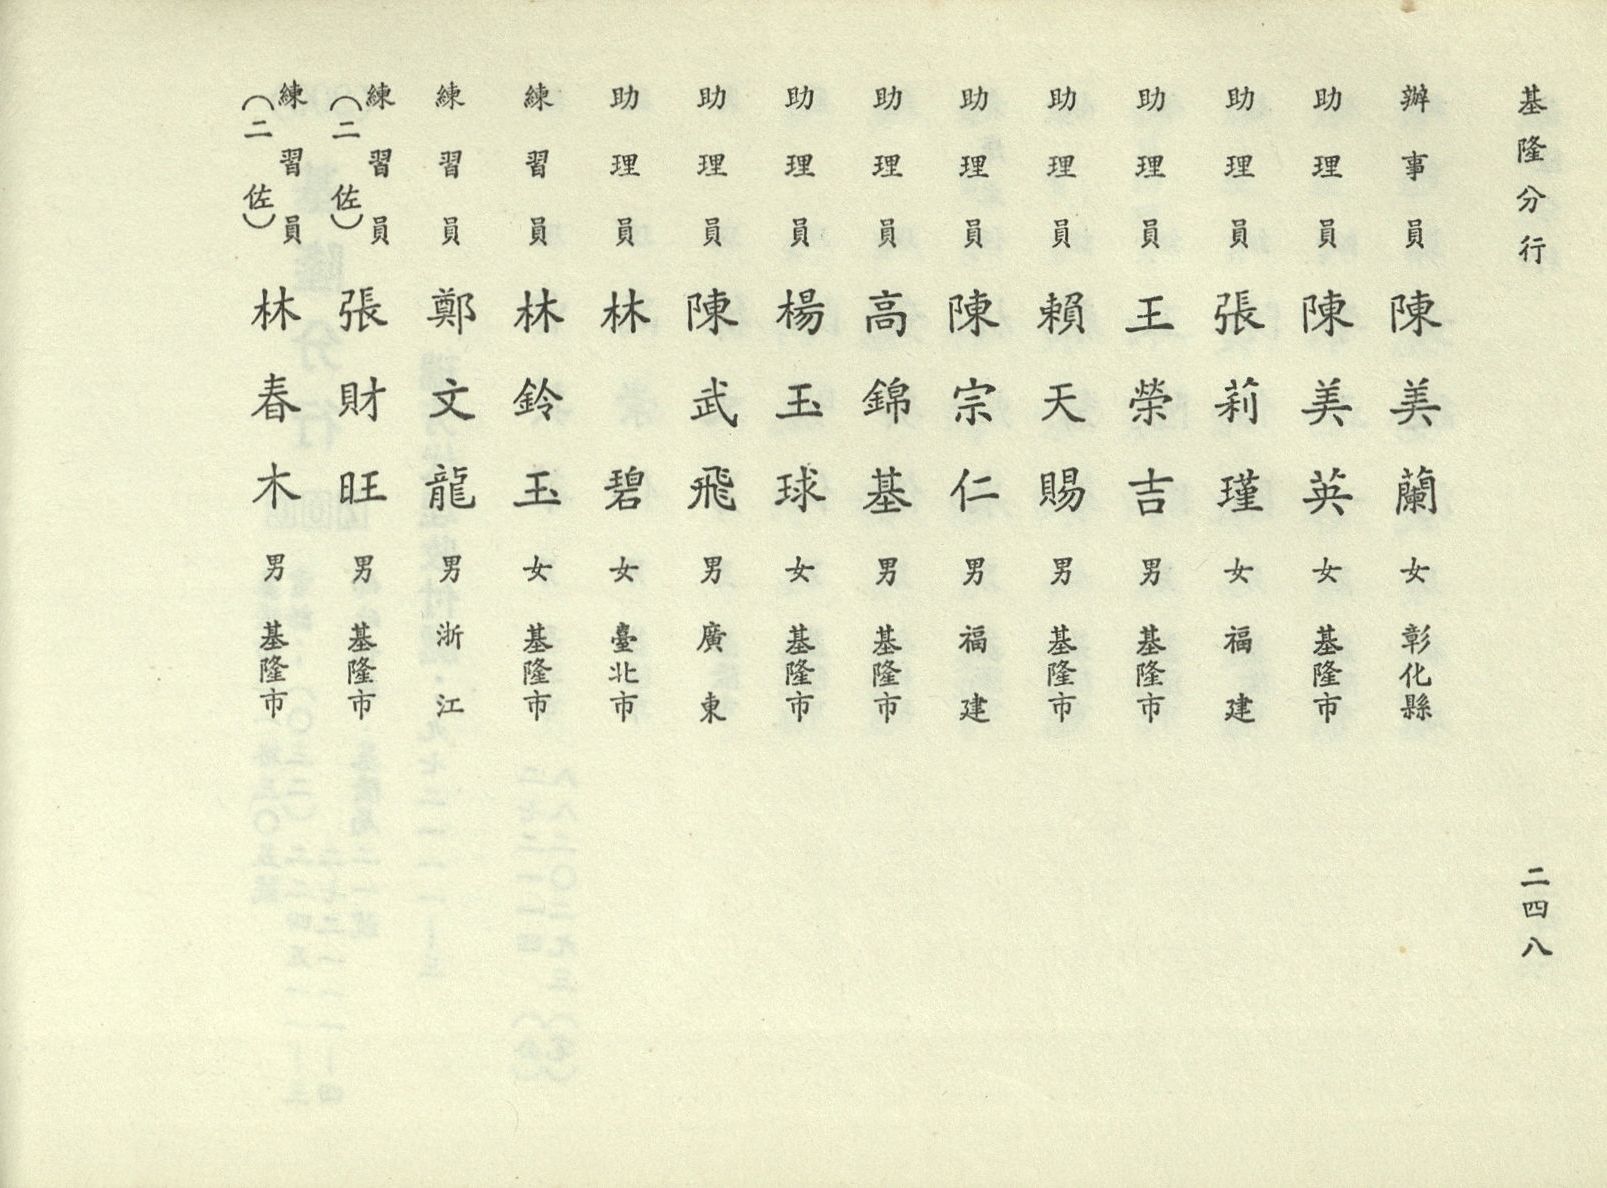 基隆分行
二四八
辦事員 陳美蘭 女 彰化縣
助理員 陳美英 女 基隆市
助理員 張莉瑾 女 福建
助理員 王榮吉 男 基隆市
助理員 賴天賜 男 基隆市
助理員 陳宗仁 男 福建
助理員 高錦基 男 基隆市
助理員 楊玉球 女 基隆市
助理員 陳武飛 男 廣東
助理員 林碧 女 臺北市
練習員 林鈴玉 女 基隆市
練習員 鄭文龍 男 浙江
練習員(二佐) 張財旺 男 基隆市
練習員(二佐) 林春木 男 基隆市